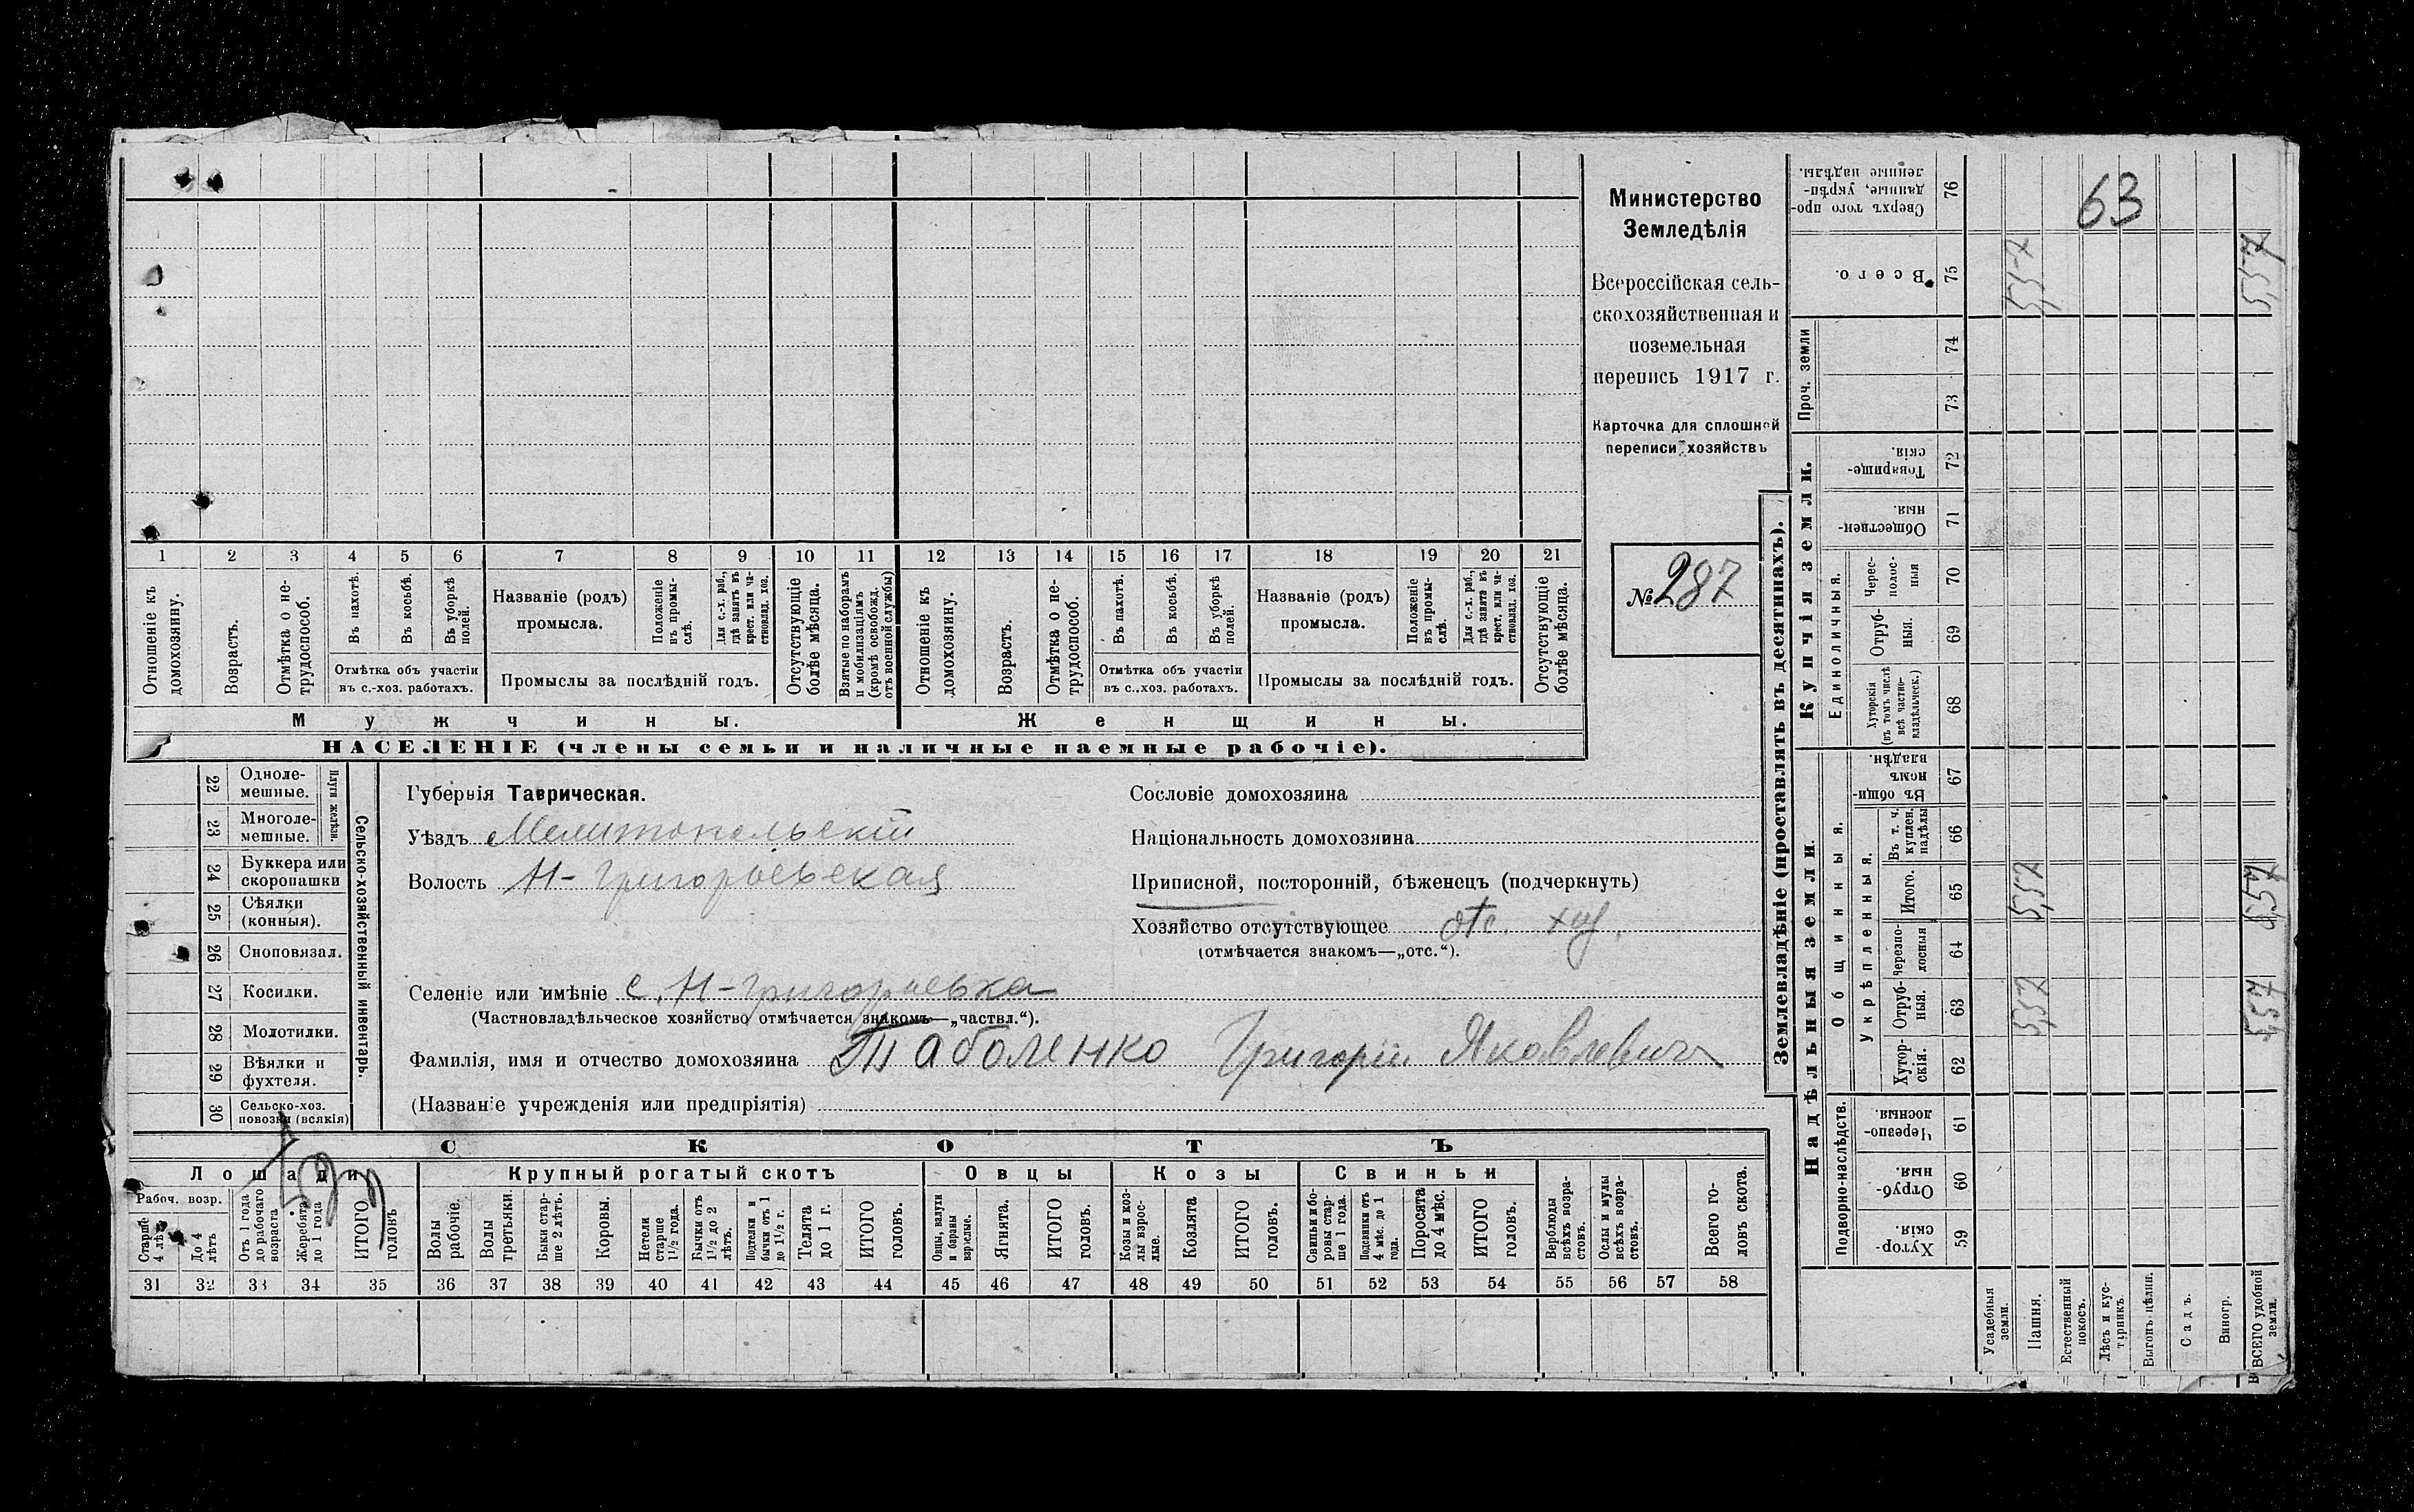 1 2 3 4 5 6 7 8 9 10 11 12 13 14 15 16 17 18 19 20 21
Отношеніе къ домохозяину.
Возрастъ.
Отмѣтка о не-
трудоспособ.
Въ пахотѣ.
Въ косьбѣ.
Въ уборкѣ
полей.
Отмѣтка объ участіи
въ с.-хоз. работахъ.
Названіе (родъ)
промысла.
Положеніе
въ промы-
слѣ.
Для с.-х. раб.,
гдѣ занятъ въ
крест. или ча-
стновлад. хоз.
Промыслы за послѣдній годъ.
Отсутствующіе
болѣе мѣсяца.
Взятые по наборамъ
и мобилизаціямъ
(кромѣ освобожд.
отъ военной службы)
Отношеніе къ
домохозяину.
Возрастъ.
Отмѣтка о не-
трудоспособ.
Въ пахотѣ.
Въ косьбѣ.
Въ уборкѣ
полей.
Отмѣтка объ участіи
въ с.-хоз. работахъ.
Названіе (родъ)
промысла.
Положеніе
въ промы-
слѣ.
Для с.-х. раб.,
гдѣ занята въ
крест. или ча-
стновлад. хоз.
Промыслы за послѣдній годъ.
Отсутствующіе
болѣе мѣсяца.
Мужчины. Женщины.
НАСЕЛЕНІЕ (члены семьи и наличные наемные рабочіе).
Министерство
Земледѣлія
Всероссійская сель-
скохозяйственная и
поземельная
перепись 1917 г.
Карточка для сплошной
переписи хозяйствъ
№ 287
22 Одноле-
мешные.
23 Многоле-
мешные.
Плуги желѣзн.
24 Буккера или
скоропашки
25 Сѣялки
(конныя).
26 Сноповязал.
27 Косилки.
28 Молотилки.
29 Вѣялки и
фухтеля.
30 Сельско-хоз.
повозки (всякія)
Сельско-хозяйственный инвентарь.
Губернія Таврическая.
Уѣздъ Мелитопольскій
Волость Н-Григорьевская
Селеніе или имѣніе с. Н-Григорьевка
(Частновладѣльческое хозяйство отмѣчается знакомъ—„частвл.“).
Фамилія, имя и отчество домохозяина Таболенко Григорій Яковлевич
(Названіе учрежденія или предпріятія)
Сословіе домохозяина
Національность домохозяина
Приписной, посторонній, бѣженецъ (подчеркнуть)
Хозяйство отсутствующее отс. хоз.
(отмѣчается знакомъ—„отс.“).
СКОТЪ
Лошади Крупный рогатый скотъ Овцы Козы Свиньи
Рабоч. возр.
Старше
4 лѣтъ
До 4
лѣтъ
Отъ 1 года
до рабочаго
возраста
Жеребята
до 1 года
ИТОГО
головъ
Волы
рабочіе.
Волы
третьяки.
Быки стар-
ше 2 лѣтъ.
Коровы.
Нетели
старше
1½ года.
Бычки отъ
1½ до 2
лѣтъ.
Подтелки и
бычки отъ 1
до 1½ г.
Телята
до 1 г.
ИТОГО
головъ.
Овцы, валухи
и бараны
взрослые.
Ягнята.
ИТОГО
головъ.
Козы и коз-
лы взрос-
лые.
Козлята
ИТОГО
головъ.
Свиньи и бо-
ровы стар-
ше 1 года.
Подсвинки отъ
4 мѣс. до 1
года.
Поросята
до 4 мѣс.
ИТОГО
головъ.
Верблюды
всѣхъ возра-
стовъ.
Ослы и мулы
всѣхъ возра-
стовъ.
Всего го-
ловъ скота.
31 32 33 34 35 36 37 38 39 40 41 42 43 44 45 46 47 48 49 50 51 52 53 54 55 56 57 58
Землевладѣніе (проставлять въ десятинахъ).
Надѣльныя земли.
Купчія земли.
Проч. земли
Подворно-наслѣдств.
Общинныя.
Укрѣпленныя.
Единоличныя.
Хутор-
скія. 59
Отруб-
ныя. 60
Черезпо-
лосныя. 61
Хутор-
скія. 62
Отруб-
ныя. 63
Черезпо-
лосныя 64
Итого. 65
Въ т. ч.
куплен.
надѣлы 66
Въ общи-
номъ
владѣн. 67
Хуторскія
(въ томъ числѣ
всѣ частно-
владѣльческ.) 68
Отруб-
ныя. 69
Черес-
полос-
ныя 70
Обществен-
ныя. 71
Товарище-
скія. 72
73
74
Всего. 75
Сверхъ того про-
данные, укрѣп-
ленные надѣлы. 76
63
Усадебныя
земли.
Пашня. 5,57 5,57 5,57
Естественный
покосъ.
Лѣсъ и кус-
тарникъ.
Выгонъ цѣлин.
Садъ.
Виногр.
ВСЕГО удобной
земли. 5,57 5,57 5,57